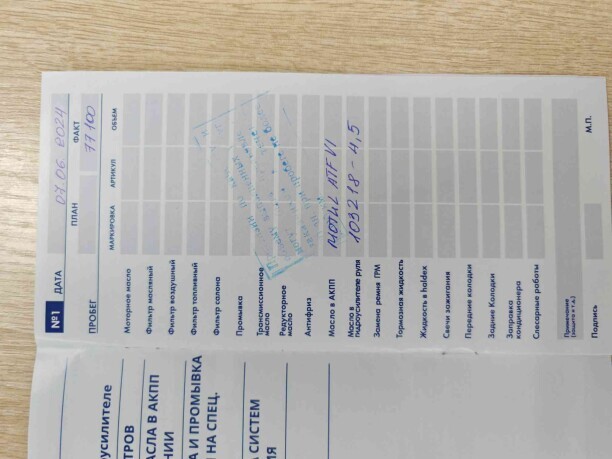 №1 ДАТА 07.06.2024
ПРОБЕГ ПЛАН ФАКТ 77100
МАРКИРОВКА АРТИКУЛ ОБЪЕМ
Моторное масло
Фильтр масляный
Фильтр воздушный
Фильтр топливный
Фильтр салона
Промывка
Трансмиссионное
масло
Редукторное
масло
Антифриз
Масло в АКПП MOTUL ATF VI
Масло в
гидроусилителе руля 103218 - 4,5
Замена ремня ГРМ
Тормозная жидкость
Жидкость в haldex
Свечи зажигания
Передние колодки
Задние Колодки
Заправка
кондиционера
Слесарные работы
Примечание
(защита и т.д.)
Подпись М.П.
оусилителе
ТРОВ
АСЛА В АКПП
НИИ
А И ПРОМЫВКА
Н НА СПЕЦ.
А СИСТЕМ
ИЯ